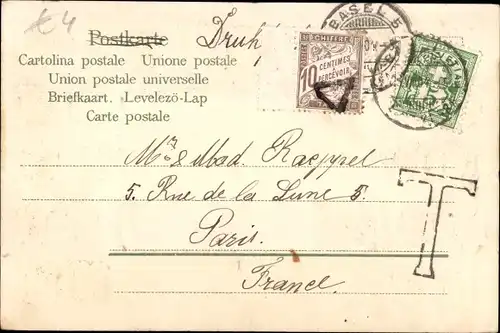 € 4
Postkarte Druk
Cartolina postale Unione postale
Union postale universelle
Briefkaart. Levelezö-Lap
Carte postale
BASEL 5
CHIFFRE
10 CENTIMES À PERCEVOIR
T
Mr & Mad. Raeppel
5. Rue de la Lune 5.
Paris.
France.